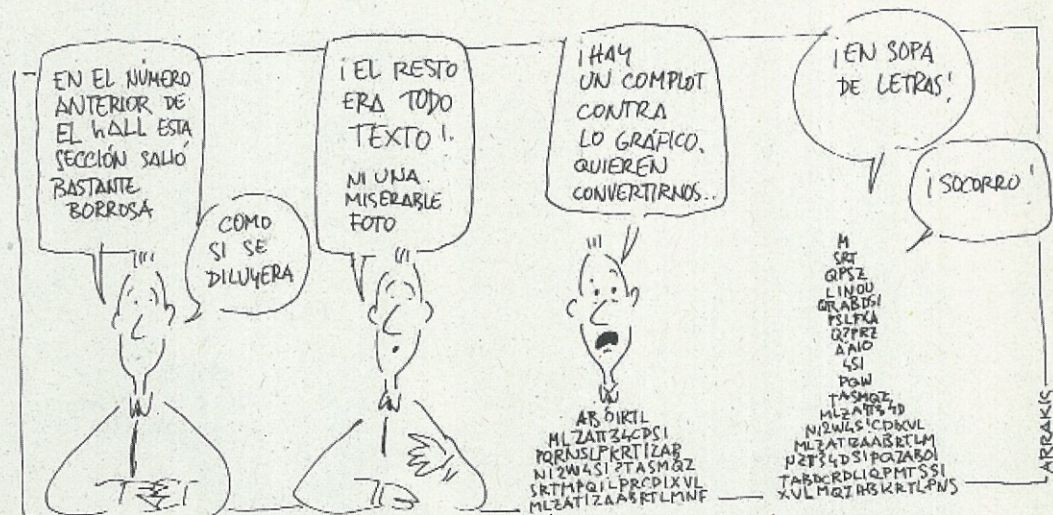 EN EL NÚMERO
ANTERIOR DE
EL hALL ESTA
SECCIÓN SALIÓ
BASTANTE
BORROSA
COMO
SI SE
DILUYERA
¡EL RESTO
ERA TODO
TEXTO!.
NI UNA
MISERABLE
FOTO
¡HAY
UN COMPLOT
CONTRA
LO GRÁFICO.
QUIEREN
CONVERTIRNOS..
AB
MLZATT34CDSI
PQRNSLPKRTIZAB
NI2W4SI?TASMQZ
SRTMPQILPRCDIXVL
MLZATIZAABRTLMNF
¡EN SOPA
DE LETRAS!
¡SOCORRO!
M
SRT
QPSZ
LINOU
QRABDSI
PSLFKA
Q?PRZ
AAIO
4SI
PQW
TASMQZ
MLZATT34D
NI2W4S!CDIXVL
MLZATIZAABRTLM
NZT34DSIPQZABOI
TABDCRDLIQPMTSSI
XVLMQIABKRTLPNS
ARRAKIS